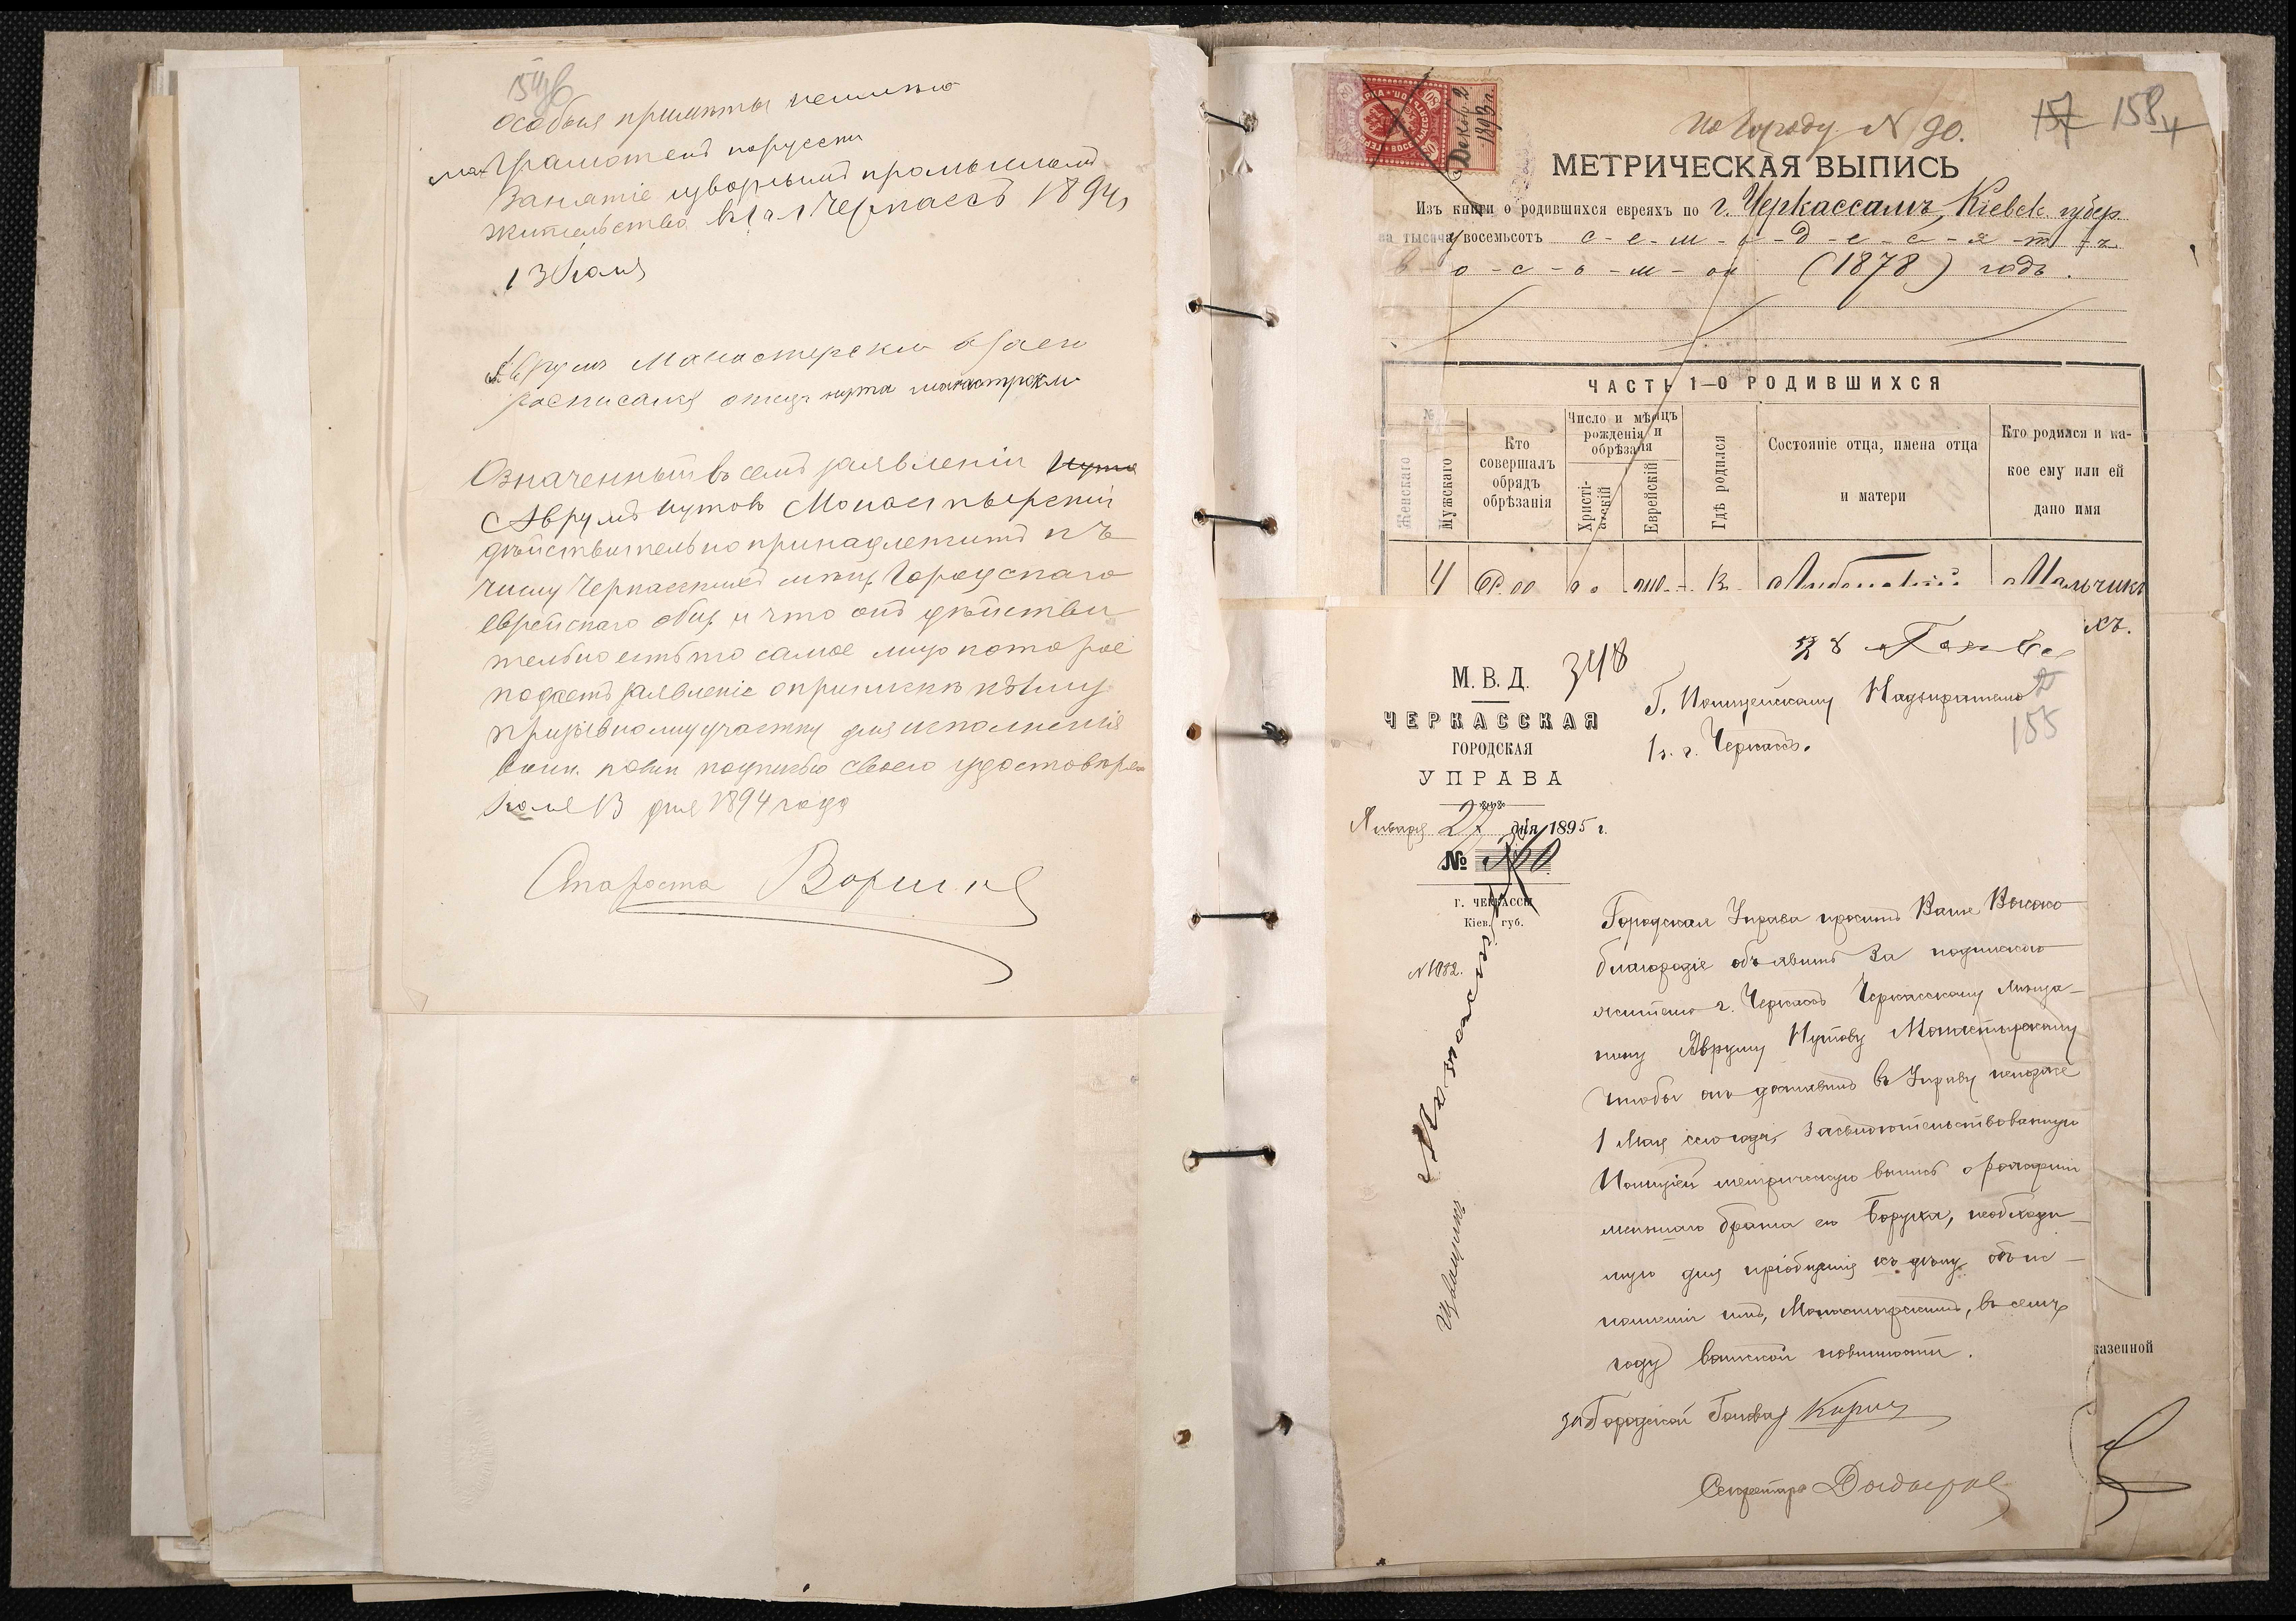 особыя примѣты неимѣю
мало грамотенъ порусски
Занятіе изворнымъ промысломъ
жительство въ г. Черкассъ 1894
13 Іюля
Аврумъ Манастерскій
росписался отецъ нута манастрски
Означенный въ семъ заявленіи
Аврумъ Нутовъ Монастырскій
дѣйствительно принадлежитъ къ
числу Черкасскихъ мѣщ. Городскаго
еврейскаго общ. и что онъ дѣйстви
тельно есть то самое лицо которое
подаетъ заявленіе о припискѣ къ 1му
призывному участку для исполненія
воин. повин подписью своею удостовѣряю
Іюля 13 дня 1894 года
Староста
№ 90.
157 158
Декабр. 2
1893 г.
МЕТРИЧЕСКАЯ ВЫПИСЬ
Изъ книги о родившихся евреяхъ по г. Черкассамъ, Кіевск. губер.
за тысяча восемьсотъ с-е-м-ь-д-е-с-я-т-ъ
в-о-с-ь-м-ой (1878) годъ.
ЧАСТЬ 1—О РОДИВШИХСЯ
№
Женскаго
Мужскаго
Кто совершалъ обрядъ обрѣзанія
Число и мѣсяцъ рожденія и обрѣзанія
Христі-анскій
Еврейскій
Гдѣ родился
Состояніе отца, имена отца и матери
Кто родился и ка-кое ему или ей дано имя
4
Мальчикъ
казенной
М. В. Д.
348
ЧЕРКАССКАЯ
ГОРОДСКАЯ
УПРАВА
Января 27 дня 1895 г.
№ 360
г. ЧЕРКАССЫ
Кіев. губ.
N 1082.
Г. Полицейскому Надзирателю
1 ч. г. Черкассъ.
155
Городская Управа проситъ Ваше Высоко
благородіе объявить за подпискою
жителю г. Черкассъ Черкасскому мѣща-
нину Авруму Нутову Монастырскому
чтобы онъ доставилъ въ Управу непозже
1 Мая сего года, засвидѣтельствованную
Полиціей метрическую выпись о рожденіи
меньшаго брата его Боруха, необходи-
мую для пріобщенія къ дѣлу объ ис-
полненіи имъ, Монастырскимъ, въ семъ
году воинской повинности.
за Городской Голова
Секретарь